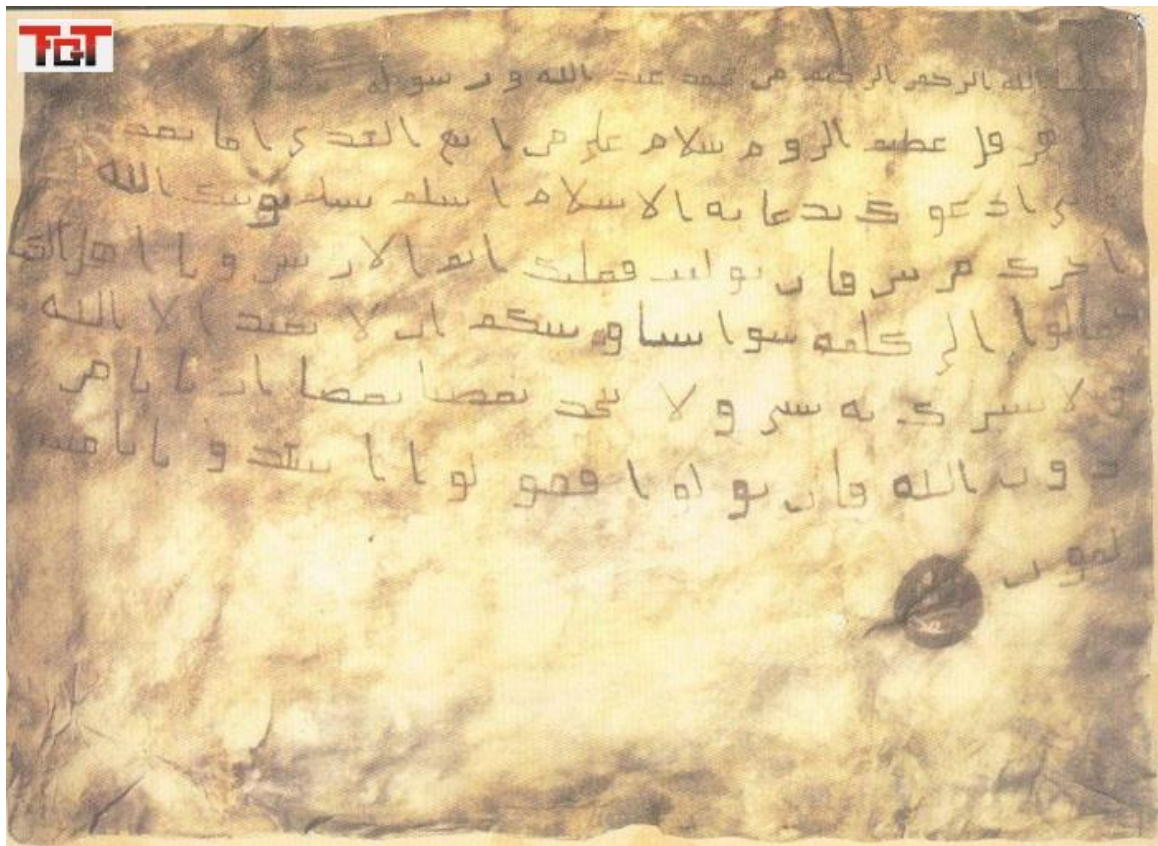 TGT
الله الرحمن الرحيم من محمد عبد الله و رسوله
هرقل عظيم الروم سلام على من اتبع الهدى اما بعد
ادعوك بدعاية الاسلام اسلم تسلم يوتك الله
اجرك مرتين فان توليت فعليك اثم الاريسين و يا اهل الكتب
تعالوا الى كلمة سوا بيننا و بينكم ان لا نعبد الا الله
و لا نشرك به شي و لا نتخذ بعضنا بعضا اربابا من
دون الله فان تولوا فقولوا اشهدوا بانا مس
لمون